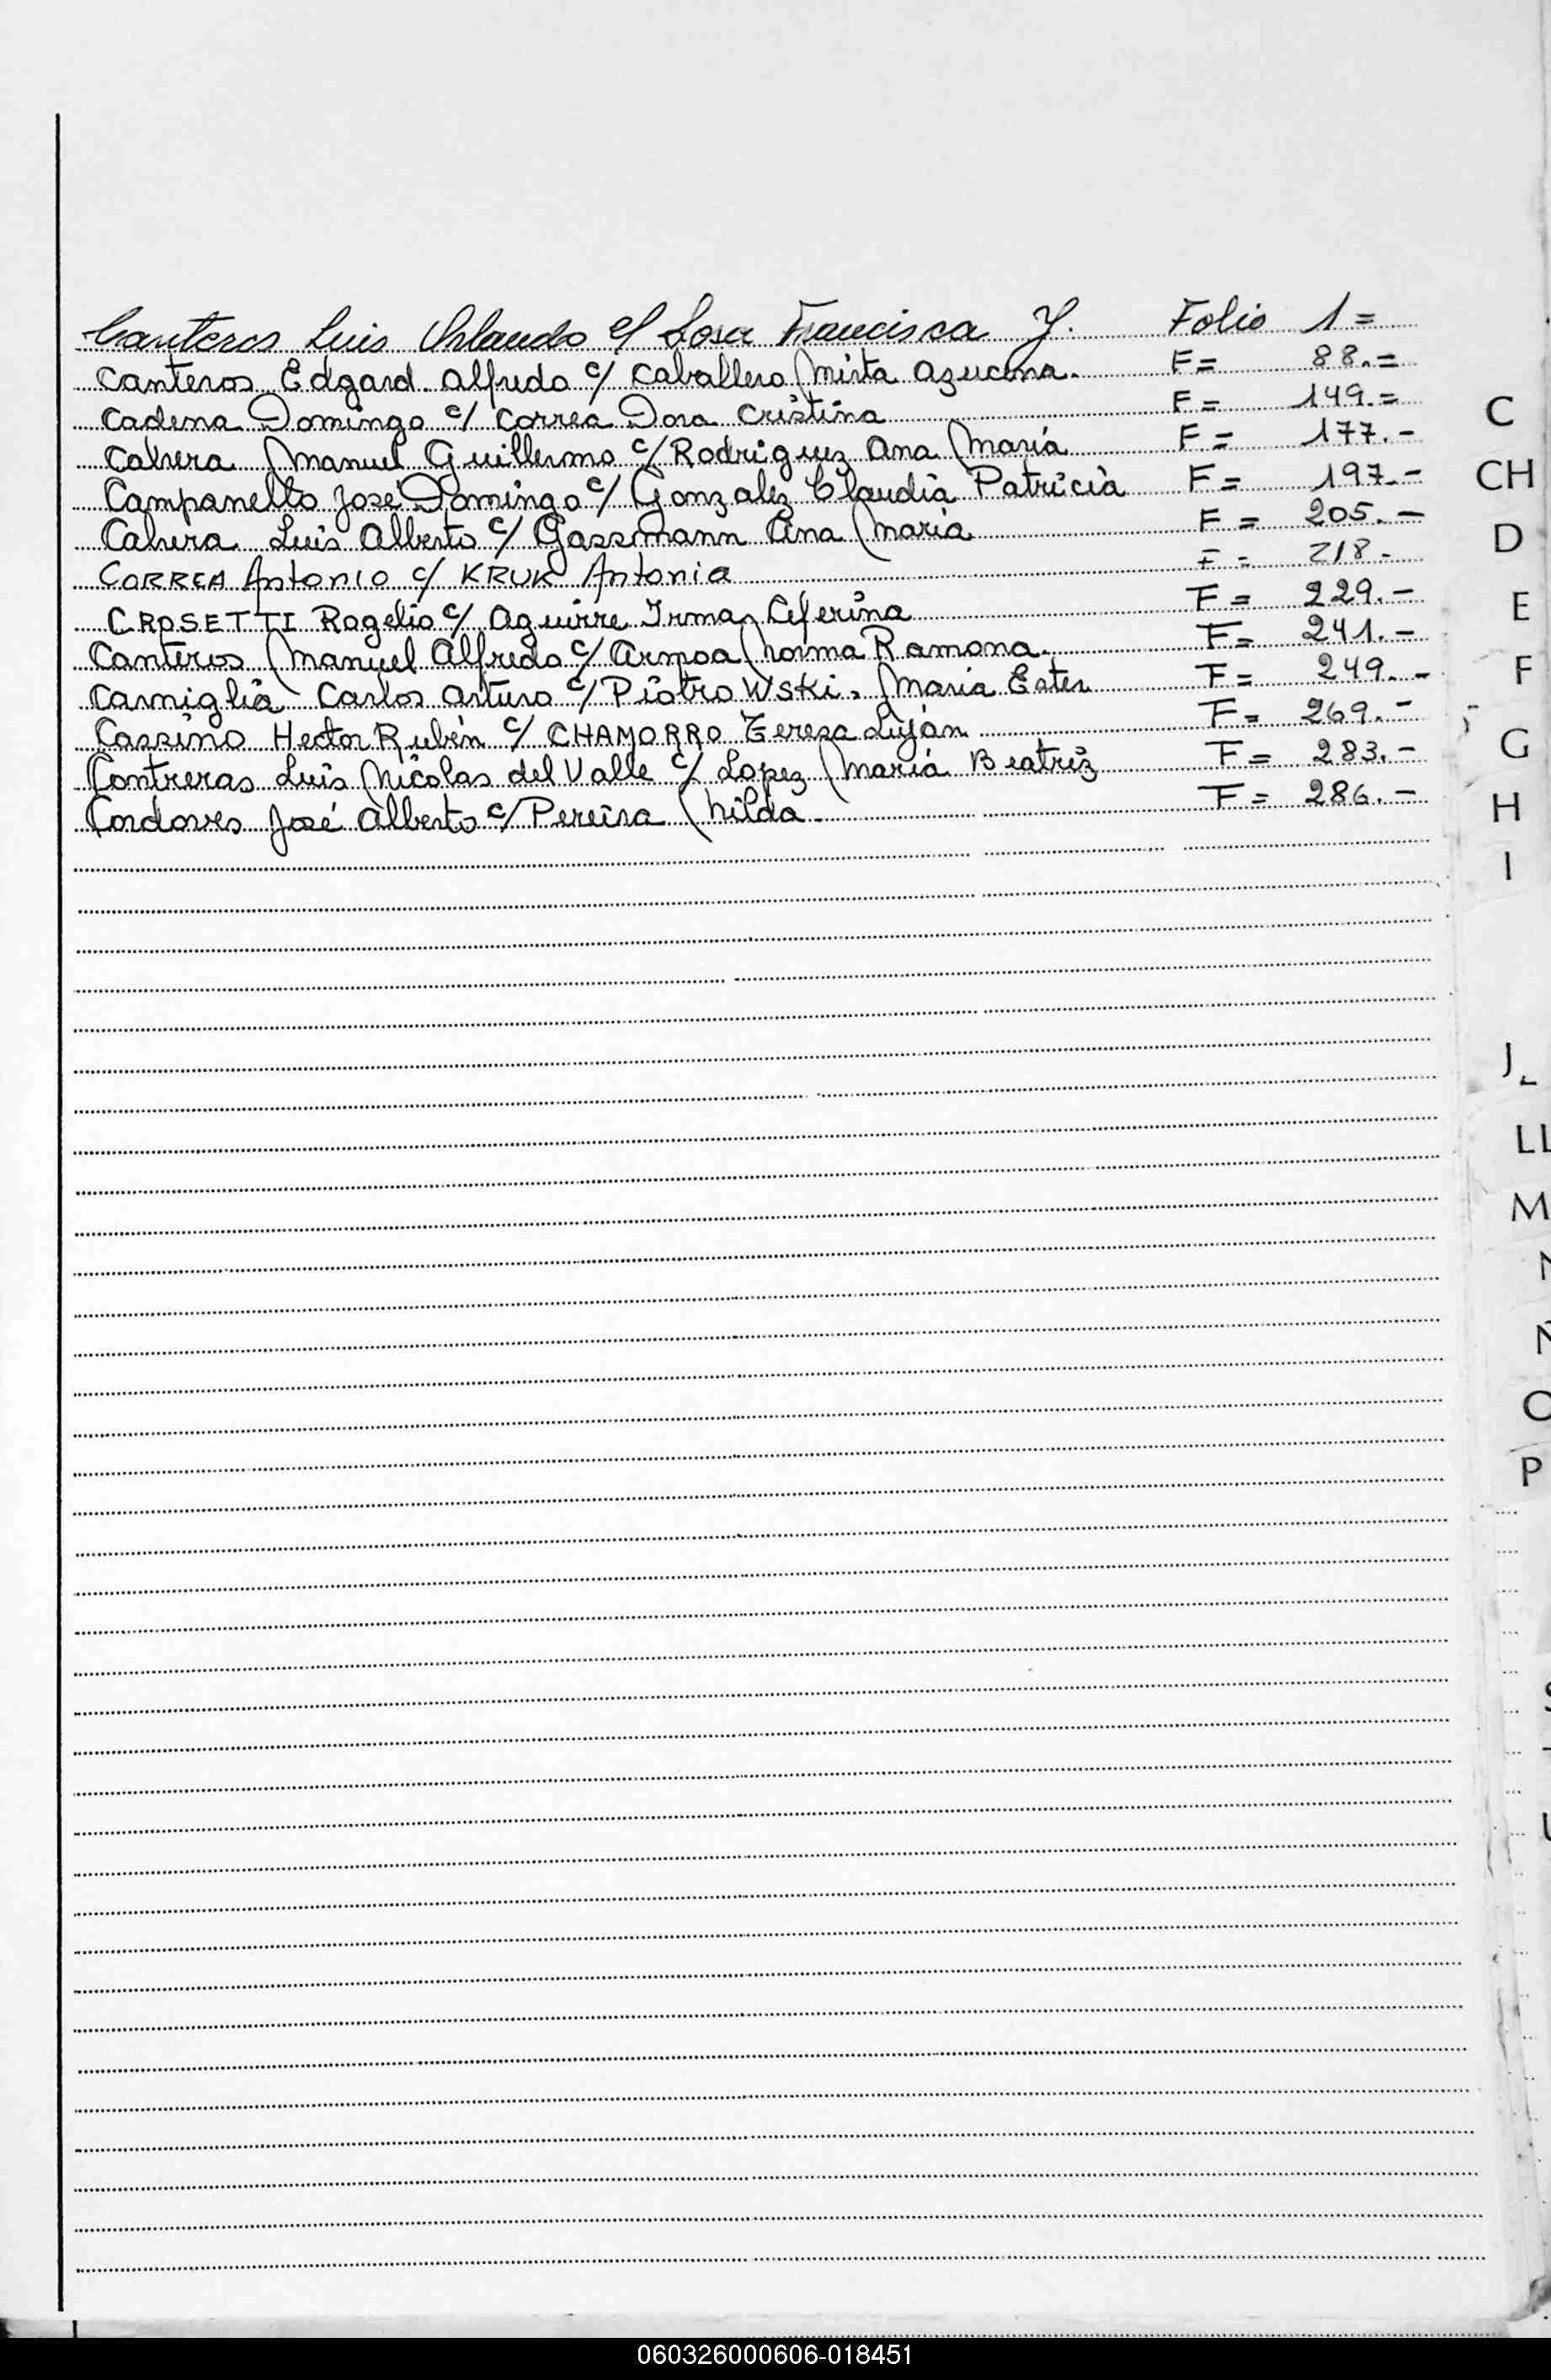 Canteros Luis Orlando c/ Sosa Francisca Y. Folio 1=
Canteros Edgard Alfredo c/ Caballero Mirta Azucena. F= 88.=
Cadena Domingo c/ Correa Dora Cristina F= 149.=
Cabrera Manuel Guillermo c/ Rodriguez Ana María F= 177.-
Campanello José Domingo c/ Gonzalez Claudia Patricia F= 197.-
Cabrera Luis Alberto c/ Gassmann Ana María F= 205.-
CORREA Antonio c/ KRUK Antonia F= 218-
CROSETTI Rogelio c/ Aguirre Irma Ceferina F= 229.-
Canteros Manuel Alfredo c/ Armoa Norma Ramona. F= 241.-
Carniglia Carlos Arturo c/ PiotroWski. María Ester F= 249.-
Cassino Hector Rubén c/ CHAMORRO Teresa Luján F= 269.-
Contreras Luis Nicolas del Valle c/ Lopez María Beatriz F= 283.-
Cordoves José Alberto c/ Pereira Nilda F= 286.-
C
CH
D
E
F
G
H
I
J
LL
M
N
Ñ
O
P
060326000606-018451